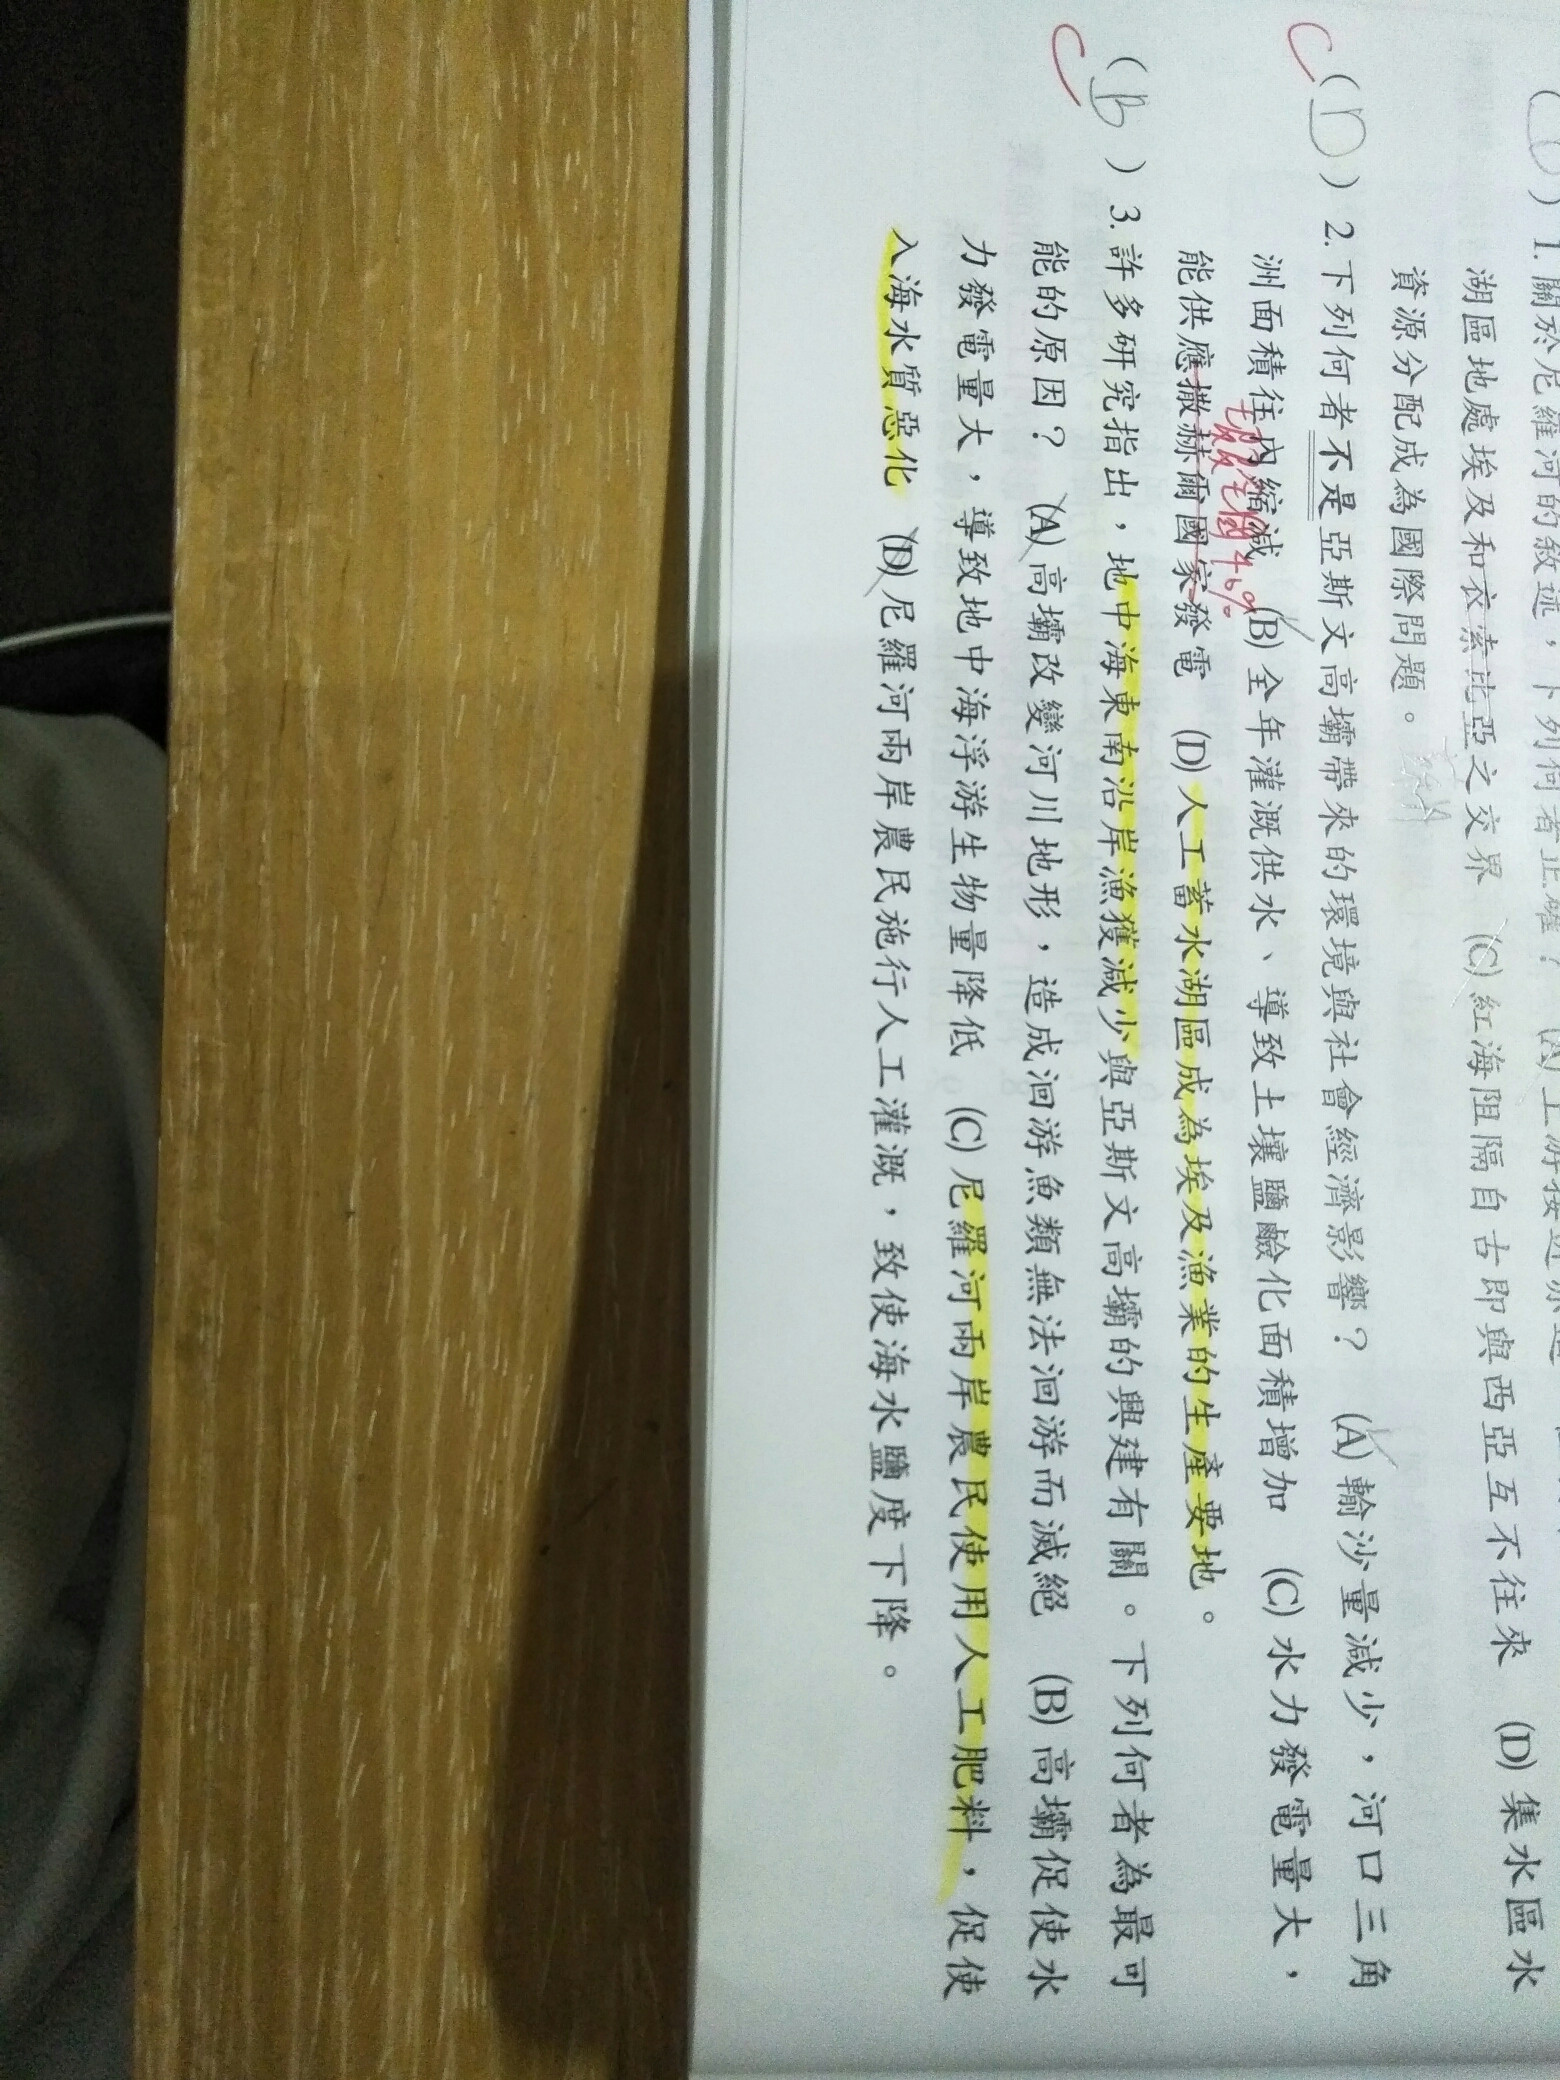 1. 關於尼羅河的敘述，下列何者正確？ (A)上游接近赤道
湖區地處埃及和衣索比亞之交界 (C)紅海阻隔自古即與西亞互不往來 (D)集水區水
資源分配成為國際問題。
C (D) 2. 下列何者不是亞斯文高壩帶來的環境與社會經濟影響？ (A)輸沙量減少，河口三角
洲面積往內縮減 (B)全年灌溉供水、導致土壤鹽鹼化面積增加 (C)水力發電量大，
能供應撒赫爾國家發電 (D)人工蓄水湖區成為埃及漁業的生產要地。
C (b) 3. 許多研究指出，地中海東南沿岸漁獲減少與亞斯文高壩的興建有關。下列何者為最可
能的原因？ (A)高壩改變河川地形，造成洄游魚類無法洄游而滅絕 (B)高壩促使水
力發電量大，導致地中海浮游生物量降低 (C)尼羅河兩岸農民使用人工肥料，促使
入海水質惡化 (D)尼羅河兩岸農民施行人工灌溉，致使海水鹽度下降。